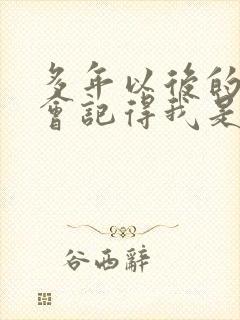 多年以後的
會記得我是
谷西辭